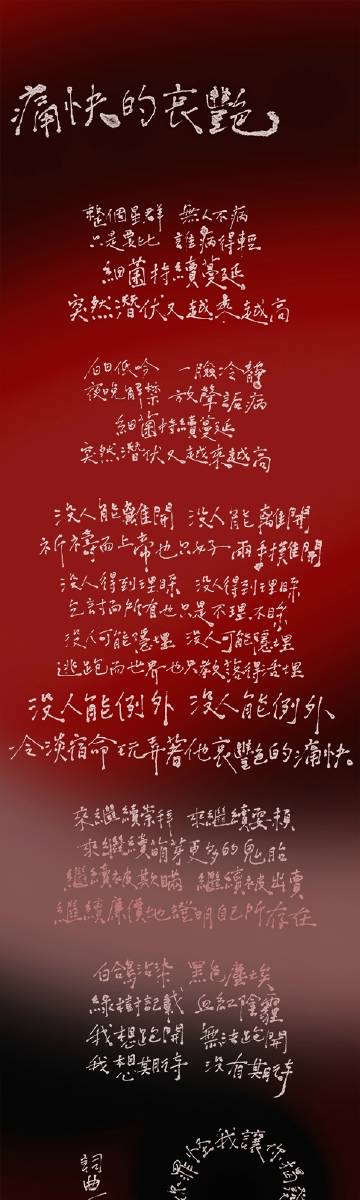 痛快的哀艷
整個星群 無人不病
只是要比 誰病得輕
細菌持續蔓延
突然潛伏又越來越高
白日低吟 一臉冷靜
夜晚解禁 放聲詬病
細菌持續蔓延
突然潛伏又越來越高
沒人能離開 沒人能離開
祈禱而上帝也只好 兩手撲離開
沒人得到理睬 沒人得到理睬
乞討而所有也只是不理不睬
沒人可能隱埋 沒人可能隱埋
逃跑而世界也只教護得活埋
沒人能例外 沒人能例外
冷淡宿命玩弄著他哀艷的痛快
來繼續崇拜 來繼續耍賴
來繼續萌芽更多的鬼胎
繼續被欺瞞 繼續被出賣
繼續廉價地證明自己所存在
白鴿沾染 黑色塵埃
綠樹記載 血紅陰霾
我想跑開 無法跑開
我想期待 沒有期待
詞曲
罪惟我讓你揭